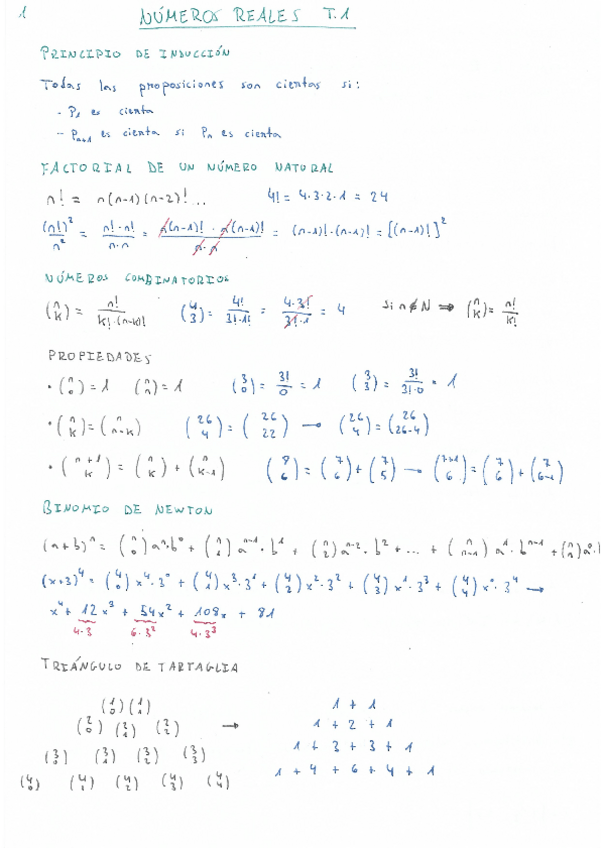 1 NÚMEROS REALES T.1
PRINCIPIO DE INDUCCIÓN
Todas las proposiciones son ciertas si:
- P₁ es cierta
- Pₙ₊₁ es cierta si Pₙ es cierta
FACTORIAL DE UN NÚMERO NATURAL
n! = n(n-1)(n-2)!... 4! = 4·3·2·1 = 24
(n!)²/n² = n!·n!/n·n = n(n-1)!·n(n-1)!/n·n = (n-1)!·(n-1)! = [(n-1)!]²
NÚMEROS COMBINATORIOS
(n k) = n!/k!·(n-k)! (4 3) = 4!/3!·1! = 4·3!/3!·1 = 4 Si n∉N ⇒ (n k) = n!/k!
PROPIEDADES
• (n 0) = 1 (n n) = 1 (3 0) = 3!/0 = 1 (3 3) = 3!/3!·0 = 1
• (n k) = (n n-k) (26 4) = (26 22) → (26 4) = (26 26-4)
• (n+1 k) = (n k) + (n k-1) (8 6) = (7 6) + (7 5) → (7+1 6) = (7 6) + (7 6-1)
BINOMIO DE NEWTON
(a+b)ⁿ = (n 0) aⁿ·b⁰ + (n 1) aⁿ⁻¹·b¹ + (n 2) aⁿ⁻²·b² + ... + (n n-1) a¹·bⁿ⁻¹ + (n n) a⁰·
(x+3)⁴ = (4 0) x⁴·3⁰ + (4 1) x³·3¹ + (4 2) x²·3² + (4 3) x¹·3³ + (4 4) x⁰·3⁴ →
x⁴ + 12x³ + 54x² + 108x + 81
4·3 6·3² 4·3³
TRIÁNGULO DE TARTAGLIA
(1 0) (1 1) 1 + 1
(2 0) (2 1) (2 2) → 1 + 2 + 1
(3 0) (3 1) (3 2) (3 3) 1 + 3 + 3 + 1
(4 0) (4 1) (4 2) (4 3) (4 4) 1 + 4 + 6 + 4 + 1